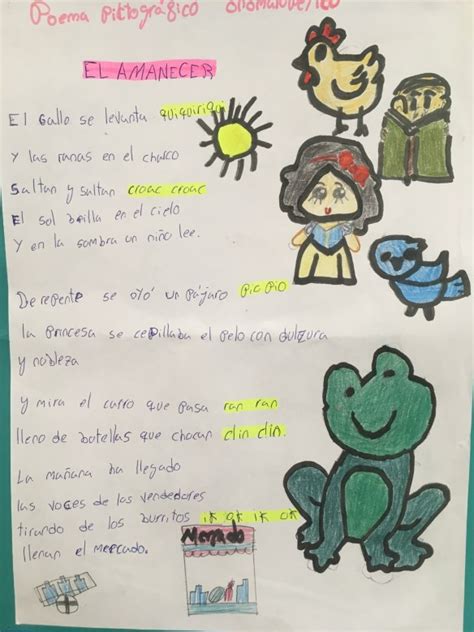 Poema pictográfico onomatopéyico
EL AMANECER
El Gallo se levanta quiquiriquí
Y las ranas en el charco
Saltan y saltan croac croac
El sol brilla en el cielo
Y en la sombra un niño lee.
De repente se oyó un pájaro pio pio
la princesa se cepillaba el pelo con dulzura
y nobleza
y mira el carro que pasa ran ran
lleno de botellas que chocan clin clin.
La mañana ha llegado
las voces de los vendedores
tirando de los burritos ik ok ik ok
llenan el mercado.
Mercado